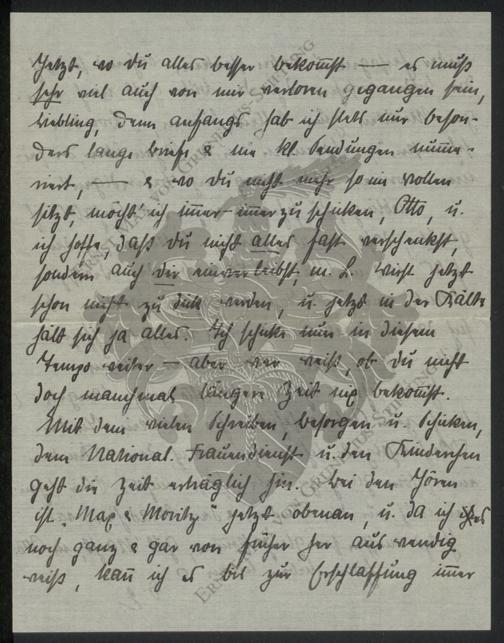 Jetzt, wo du alles besser bekommst — es muß
sehr viel auch von mir verloren gegangen sein,
Liebling, denn anfangs hab ich stets nur beson-
ders lange Briefe & nie kl. Sendungen nume-
riert, — & wo du nicht mehr so im Vollen
sitzt, möcht' ich immer-immerzu schicken, Otto, u.
ich hoffe, daß du nicht alles fast verschenkst,
sondern auch dir einverleibst, m. L. wirst jetzt
schon nicht zu dick werden, u. jetzt in der Kälte
hält sich ja alles. Ich schicke nun in diesem
Tempo weiter — aber wer weiß, ob du nicht
doch manchmal längere Zeit nix bekommst.
Mit dem vielen Schreiben, besorgen u. schicken,
dem National. Frauendienst u. den Kinderchen
geht die Zeit erträglich hin. Bei den Jören
ist "Max & Moritz" jetzt obenan, u. da ich es
noch ganz & gar von früher her auswendig
weiß, kann ich es bis zur Erschlaffung immer